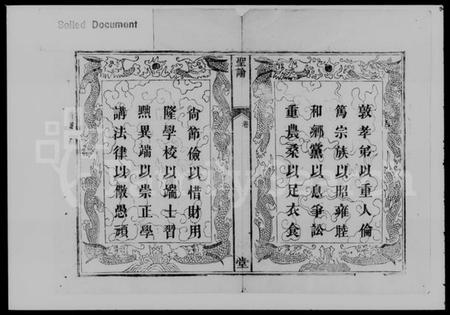 Soiled Document
敦孝弟以重人倫
篤宗族以昭雍睦
和鄉黨以息爭訟
重農桑以足衣食
聖諭
卷
堂
尙節儉以惜財用
隆學校以端士習
黜異端以崇正學
講法律以儆愚頑